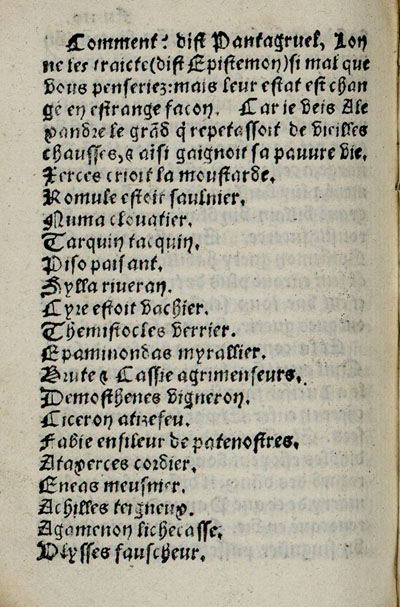 Comment? dist Pantagruel, Lon
ne les traicte(dist Epistemon)si mal que
vous penseriez:mais leur estat est chan
ge en estrange facon. Car ie veis Ale
xandre le grãd q̃ repetassoit de vieilles
chausses,⁊ aisi gaignoit sa pauure vie.
Xerces crioit la moustarde.
Romule estoit saulnier.
Numa clouatier.
Tarquin tacquin.
Piso paisant.
Sylla riueran.
Cyre estoit vachier.
Themistocles verrier.
Epaminondas myrallier.
Brute ⁊ Cassie agrimenseurs.
Demosthenes vigneron.
Ciceron atizefeu.
Fabie enfileur de patenostres.
Ataxerces cordier.
Eneas meusnier.
Achilles teigneux.
Agamenon lichecasse.
Vlysses fauscheur.